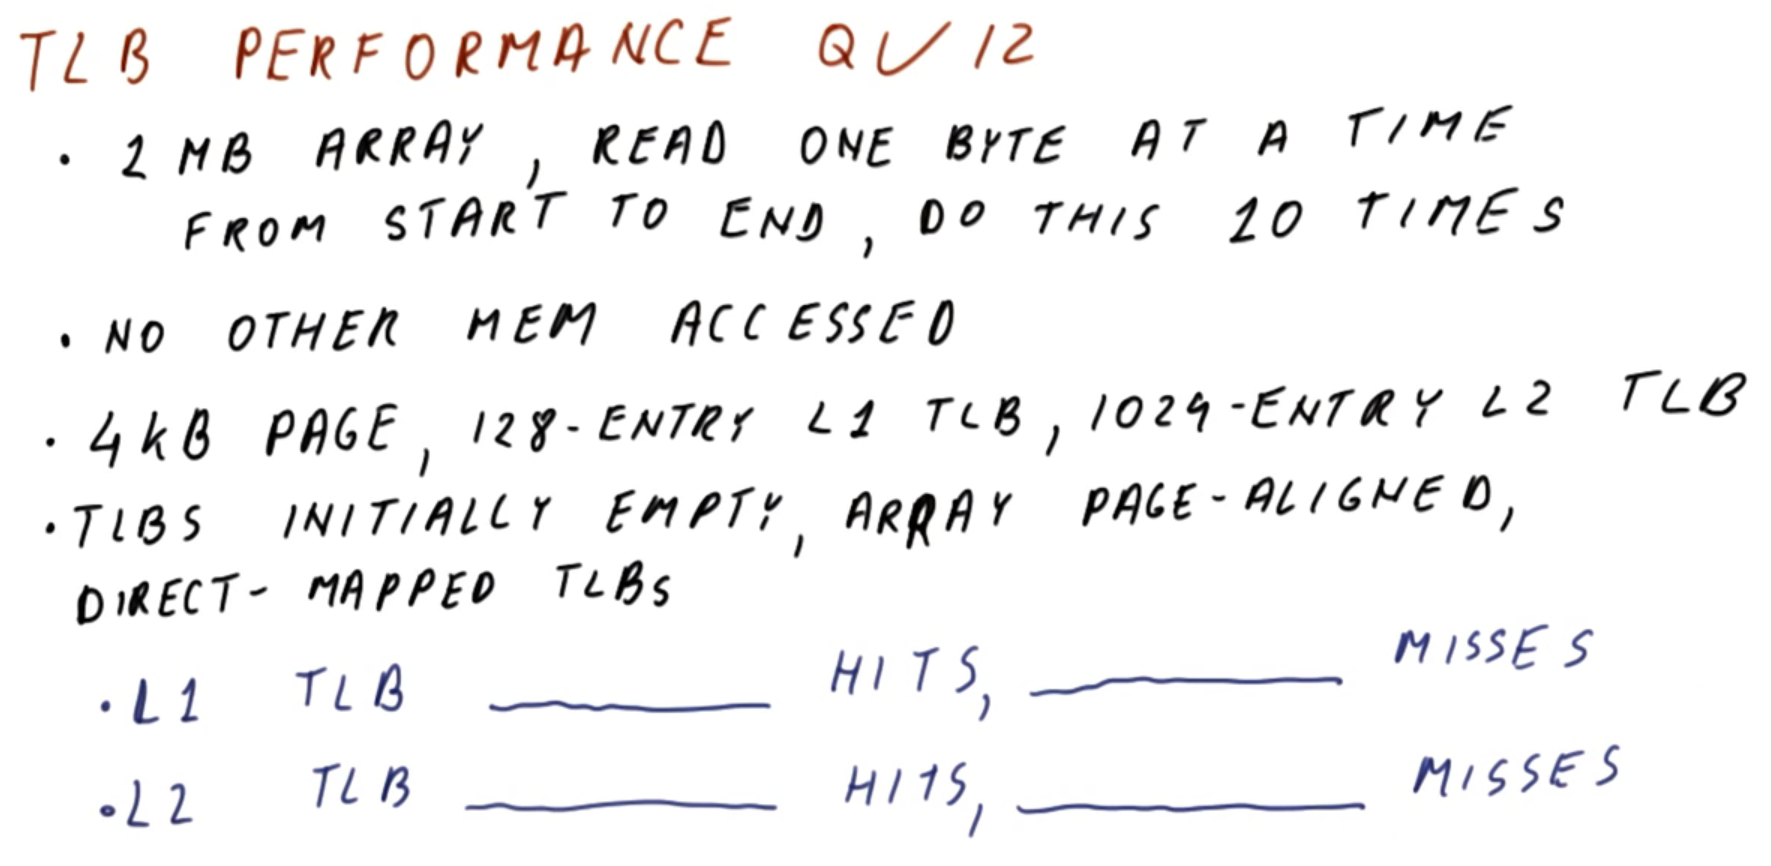 TLB PERFORMANCE QUIZ
· 1 MB ARRAY, READ ONE BYTE AT A TIME
FROM START TO END, DO THIS 10 TIMES
· NO OTHER MEM ACCESSED
· 4kB PAGE, 128-ENTRY L1 TLB, 1024-ENTRY L2 TLB
· TLBS INITIALLY EMPTY, ARRAY PAGE-ALIGNED,
DIRECT-MAPPED TLBs
· L1 TLB ______ HITS, ______ MISSES
· L2 TLB ______ HITS, ______ MISSES